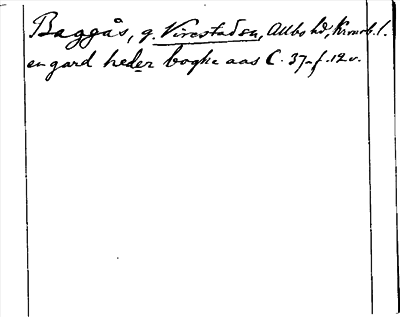 Baggås, g. Virestaden, Allbo hd, Kronob. l.
en gard heder bogke aas C. 37 f. 12 v.